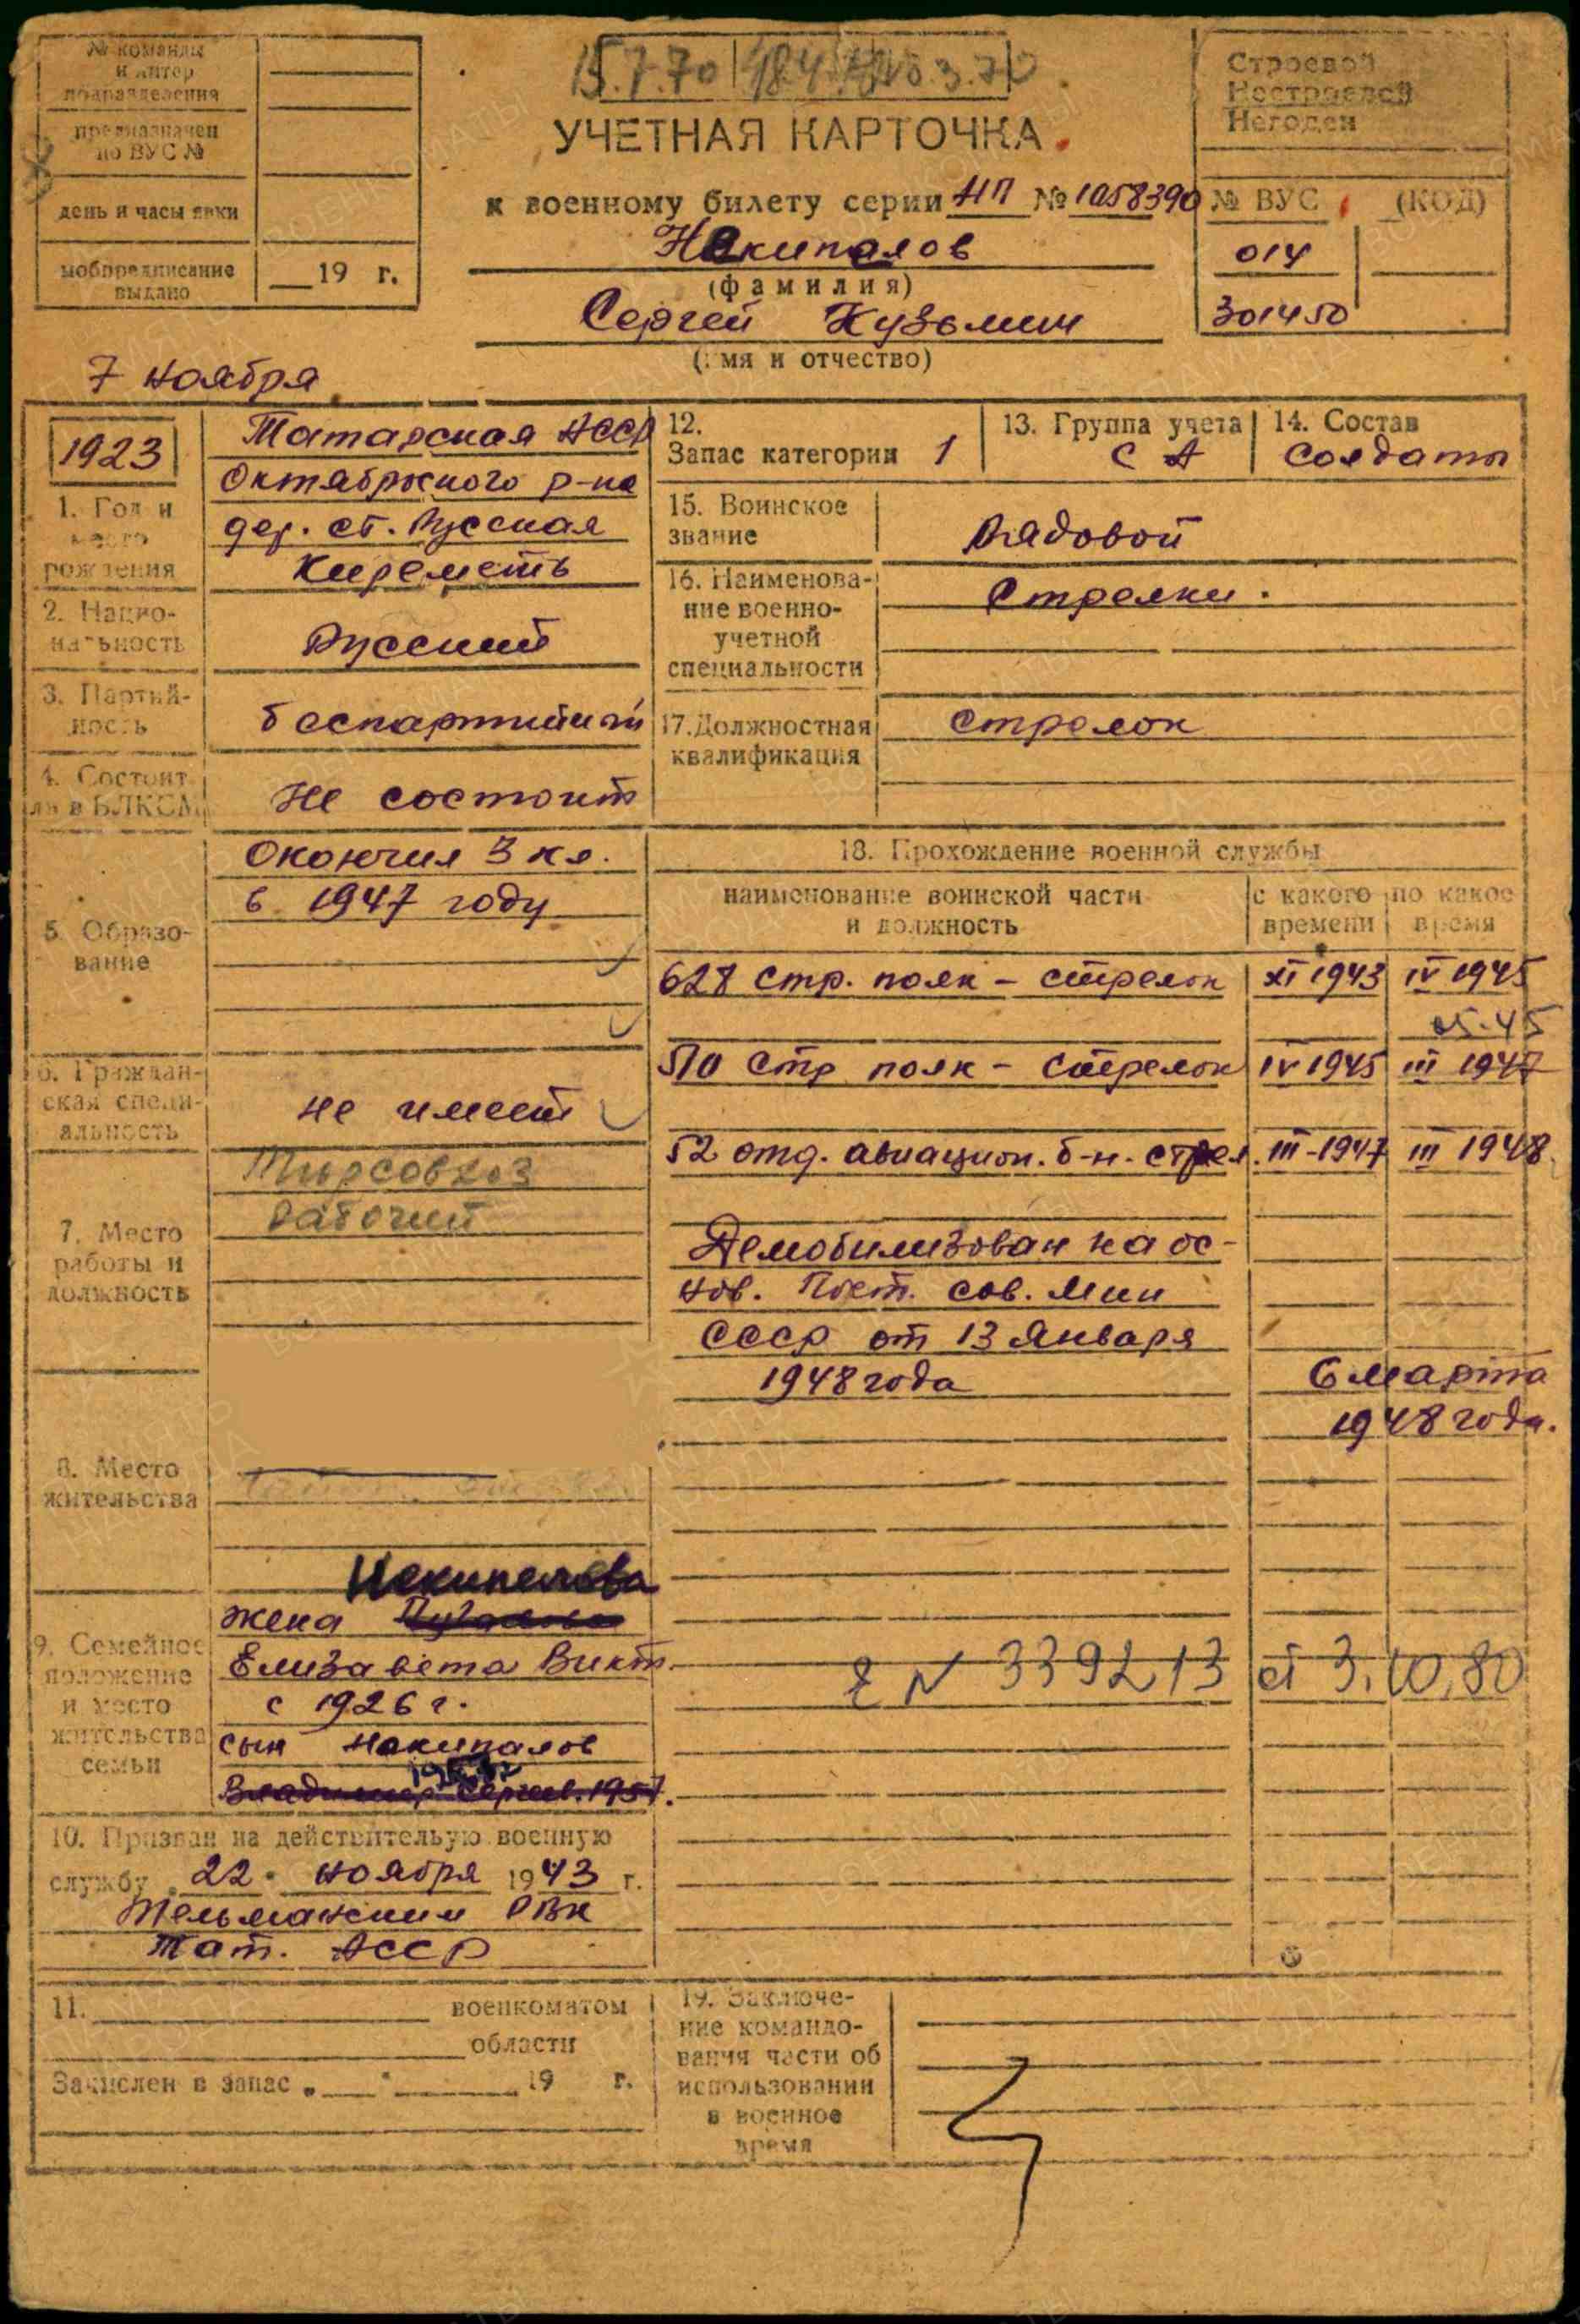 № команды
и литер
подразделения
предназначен
по ВУС №
день и часы явки
мобпредписание
выдано
19 г.
15.7.70
УЧЕТНАЯ КАРТОЧКА
к военному билету серии НП № 1058390
Некипелов
(фамилия)
Сергей Кузьмич
(имя и отчество)
Строевой
Нестроевой
Негоден
№ ВУС (КОД)
014
301450
7 ноября
1923
1. Год и
место
рождения
Татарская АССР
Октябрьского р-на
дер. ст. Русская
Киреметь
2. Нацио-
нальность
Русский
3. Партий-
ность
беспартийный
4. Состоит
ли в ВЛКСМ
Не состоит
5. Образо-
вание
Окончил 3 кл.
в 1947 году
6. Граждан-
ская специ-
альность
не имеет
7. Место
работы и
должность
Рабочий
8. Место
жительства
9. Семейное
положение
и место
жительства
семьи
Некипелова
жена
Елизавета Викт.
с 1926 г.
сын Некипелов
Владимир Сергеев. 1957.
10. Призван на действительую военную
службу „22" ноября 1943 г.
Тельманским РВК
Тат. АССР
11. военкоматом
области
Зачислен в запас „ " 19 г.
12.
Запас категории 1
13. Группа учета
СА
14. Состав
Солдаты
15. Воинское
звание
Рядовой
16. Наименова-
ние военно-
учетной
специальности
Стрелки.
17. Должностная
квалификация
Стрелок
18. Прохождение военной службы
наименование воинской части
и должность
с какого
времени
по какое
время
628 стр. полк – стрелок XI 1943 IV 1945
05.45
510 стр полк – стрелок IV 1945 III 1947
52 отд. авиацион. б-н. стрел. III-1947 III 1948.
Демобилизован на ос-
нов. Пост. сов. Мин
СССР от 13 Января
1948 года
6 марта
1948 года.
N 339213 от 3.10.80
19. Заключе-
ние командо-
вания части об
использовании
в военное
время